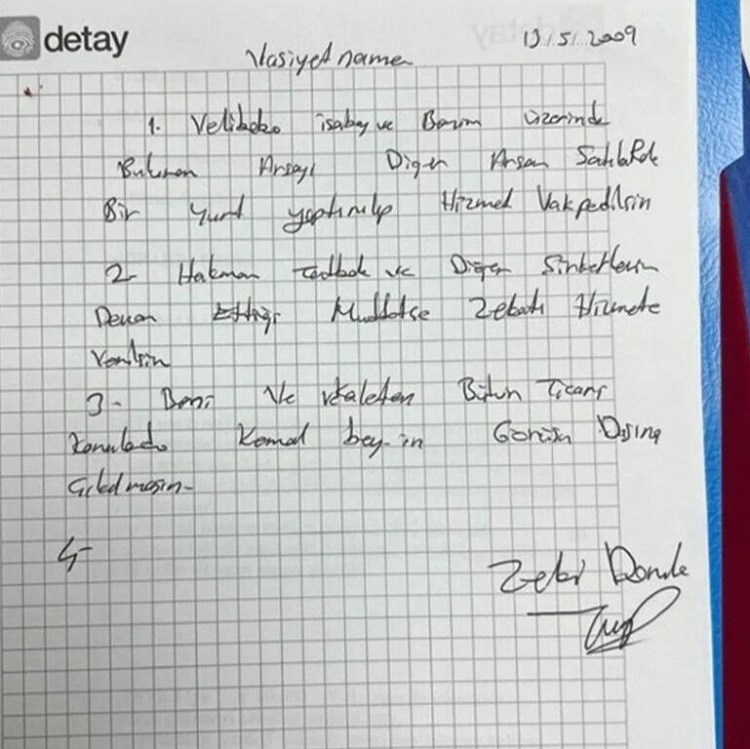 detay
Vasiyet name
13/5/2009
1. Velibaba isabey ve Benim üzerimde
Bulunan Arsayı Diğer Arsan Sahibleride
Bir yurt yaptırılıp Hizmet Vakfedilsin
2- Hakman ve Diğer Şirketlerin
Devam Ettiği Müddetçe Zekatı Hizmete
Verilsin
3- Beni Ve vekaleten Bütün Ticari
Konularda Kemal bey-in Görüşü Dışına
Çıkılmasın-
4-
Zeki